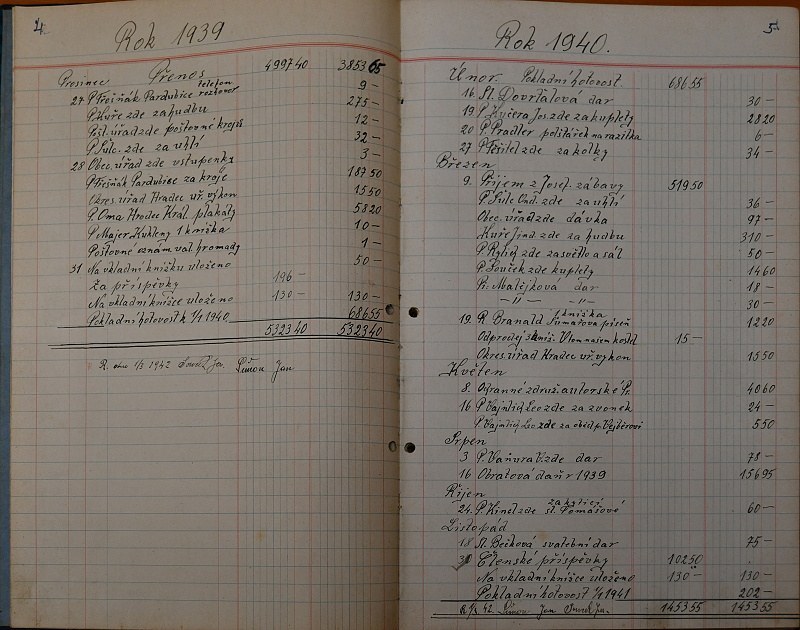 4
Rok 1939
Prosinec Přenos 499740 385365
27 P. Třešňák Pardubice telefon rozhovor 9-
P. Kuře zde za hudbu 275-
Pošt. úřad zde poštovné krojů 12-
P. Šulc. zde za uhlí 32-
28 Obec. úřad zde vstupenky 3-
P. Třešňák Pardubice za kroje 18750
Okres. úřad Hradec úř. výkon 1550
P. Oma Hradec Král. plakáty 5820
P. Majer Kukleny 1 knížka 10-
Poštovné oznám. val. hromady 1-
31 Na vkladní knížku uloženo 50-
Za příspěvky 196-
Na vkladní knížce uloženo 130- 130-
Pokladní hotovost k 1/1 1940 68655
532340 532340
R. dne 1/2 1942 Jan
5
Rok 1940.
Únor. Pokladní hotovost. 68655
16. Sl. Dovrtalová dar 30-
19 P. Kučera Jos. zde za kuplety 2820
20 P. Pradler polštářek na razítka 6-
27 P. Těšitel zde za kolky 34-
Březen
9. Příjem z Josef. zábavy 51950
P. Šulc Ond. zde za uhlí 36-
Obec. úřad zde dávka 97-
Kuře Jind. zde za hudbu 310-
P. Rylich zde za světlo a sál 50-
P. Souček zde kuplety 1460
Pí. Matějková dar 18-
-"- -"- 30-
19. R Branald 1 knížka Šumařova píseň 1220
Odprodej 3 kníž. V tom našem kostel. 15-
Okres. úřad Hradec úř. výkon 1550
Květen
8. Ochranné združ. autorské Pr. 4060
16 P. Vajnlich Leo zde za zvonek 24-
P. Vajnlich Leo zde za oběd p. 550
Srpen
3 P. Vaňura V. zde dar 78-
16 Obratová daň r 1939 15695
Říjen
24. P. Kinel zde za kytici sl. Tomášové 60-
Listopád
18 Sl. Bečková svatební dar 75-
30 Členské příspěvky 10250
Na vkladní knížce uloženo 130- 130-
Pokladní hotovost 1/1 1941 202-
R 1/2 42. Jan 145355 145355